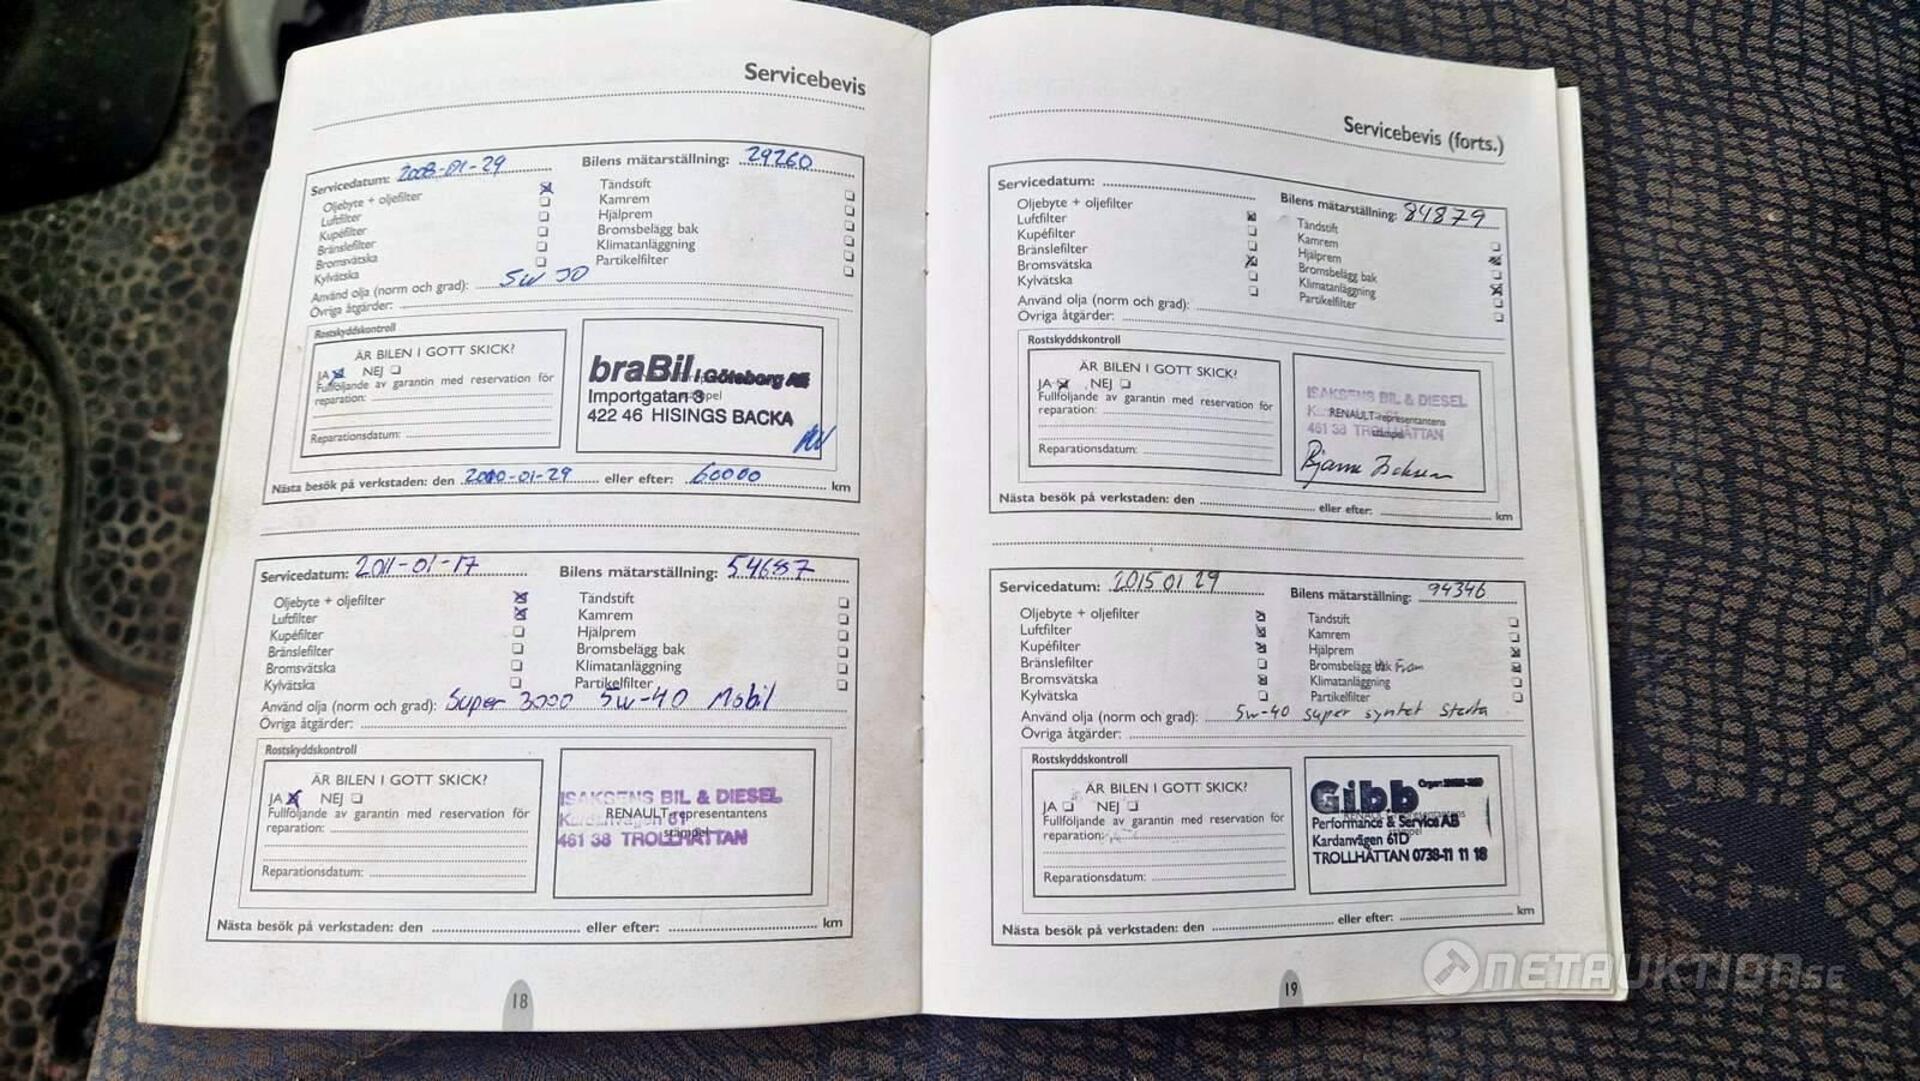 Servicebevis
Servicedatum: 2008-01-29 Bilens mätarställning: 29260
Oljebyte + oljefilter Tändstift
Luftfilter Kamrem
Kupéfilter Hjälprem
Bränslefilter Bromsbelägg bak
Bromsvätska Klimatanläggning
Kylvätska Partikelfilter
Använd olja (norm och grad): 5W 30
Övriga åtgärder:
Rostskyddskontroll
ÄR BILEN I GOTT SKICK?
JA NEJ
Fullföljande av garantin med reservation för
reparation:
Reparationsdatum:
braBil i Göteborg AB
Importgatan 3
422 46 HISINGS BACKA
Nästa besök på verkstaden: den 2010-01-29 eller efter: 60000 km
Servicedatum: 2011-01-17 Bilens mätarställning: 54687
Oljebyte + oljefilter Tändstift
Luftfilter Kamrem
Kupéfilter Hjälprem
Bränslefilter Bromsbelägg bak
Bromsvätska Klimatanläggning
Kylvätska Partikelfilter
Använd olja (norm och grad): Super 3000 5w-40 Mobil
Övriga åtgärder:
Rostskyddskontroll
ÄR BILEN I GOTT SKICK?
JA NEJ
Fullföljande av garantin med reservation för
reparation:
Reparationsdatum:
ISAKSENS BIL & DIESEL
RENAULT-representantens
Kardanvägen 61
stämpel
461 38 TROLLHÄTTAN
Nästa besök på verkstaden: den eller efter: km
18
Servicebevis (forts.)
Servicedatum: Bilens mätarställning: 84879
Oljebyte + oljefilter Tändstift
Luftfilter Kamrem
Kupéfilter Hjälprem
Bränslefilter Bromsbelägg bak
Bromsvätska Klimatanläggning
Kylvätska Partikelfilter
Använd olja (norm och grad):
Övriga åtgärder:
Rostskyddskontroll
ÄR BILEN I GOTT SKICK?
JA NEJ
Fullföljande av garantin med reservation för
reparation:
Reparationsdatum:
ISAKSENS BIL & DIESEL
RENAULT-representantens
461 38 TROLLHÄTTAN
stämpel
Bjarne Isaksen
Nästa besök på verkstaden: den eller efter: km
Servicedatum: 2015 01 29 Bilens mätarställning: 94346
Oljebyte + oljefilter Tändstift
Luftfilter Kamrem
Kupéfilter Hjälprem
Bränslefilter Bromsbelägg bak Fram
Bromsvätska Klimatanläggning
Kylvätska Partikelfilter
Använd olja (norm och grad): 5w-40 super syntet
Övriga åtgärder:
Rostskyddskontroll
ÄR BILEN I GOTT SKICK?
JA NEJ
Fullföljande av garantin med reservation för
reparation:
Reparationsdatum:
Gibb
RENAULT-representantens
Performance & Service AB
stämpel
Kardanvägen 61D
TROLLHÄTTAN 0738-11 11 18
Nästa besök på verkstaden: den eller efter: km
19
NETAUKTION.SE